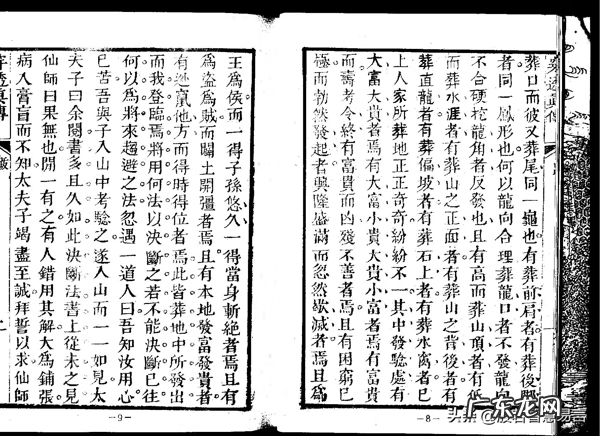 葬口而彼又葬尾同一龜也有葬前肩者有葬後
者同一鳳形也何以龍向合理葬龍口者不發龍
不合硬挖龍角者反發也且有高而葬山頂者有低
而葬水涯者有葬山之正面者有葬山之背後者有
葬直龍者有葬偏坡者有葬石上者有葬水窩者已
上人家所葬地正正奇奇紛紛不一其中發驗處有
大富大貴者焉且有大富小貴大貴小富者焉且有富
而壽考令終有富貴而凶殘不善者焉且有困窮已
極而勃然發起者興隆盛滿而忽然歇滅者焉且爲
王爲侯而一得子孫悠久一得當身斬絕者焉且有
爲盜爲賊而闢土開彊者焉且有本地發富發貴者
有逃竄他方而得時得位者焉此皆葬地中所發出
而我登臨焉將用何法以決斷之若不能決斷已往
何以爲將來趨避之法忽遇一道人曰吾知汝用心
已苦吾與子入山中考驗之遂入山而一一如見太
夫子曰余閱書多且久如此決斷法書上從未之見
仙師曰果無也間一有之有人錯用其解大爲鋪張
病入膏盲而不知太夫子竭盡至誠拜誓以求仙師
-8-
-9-